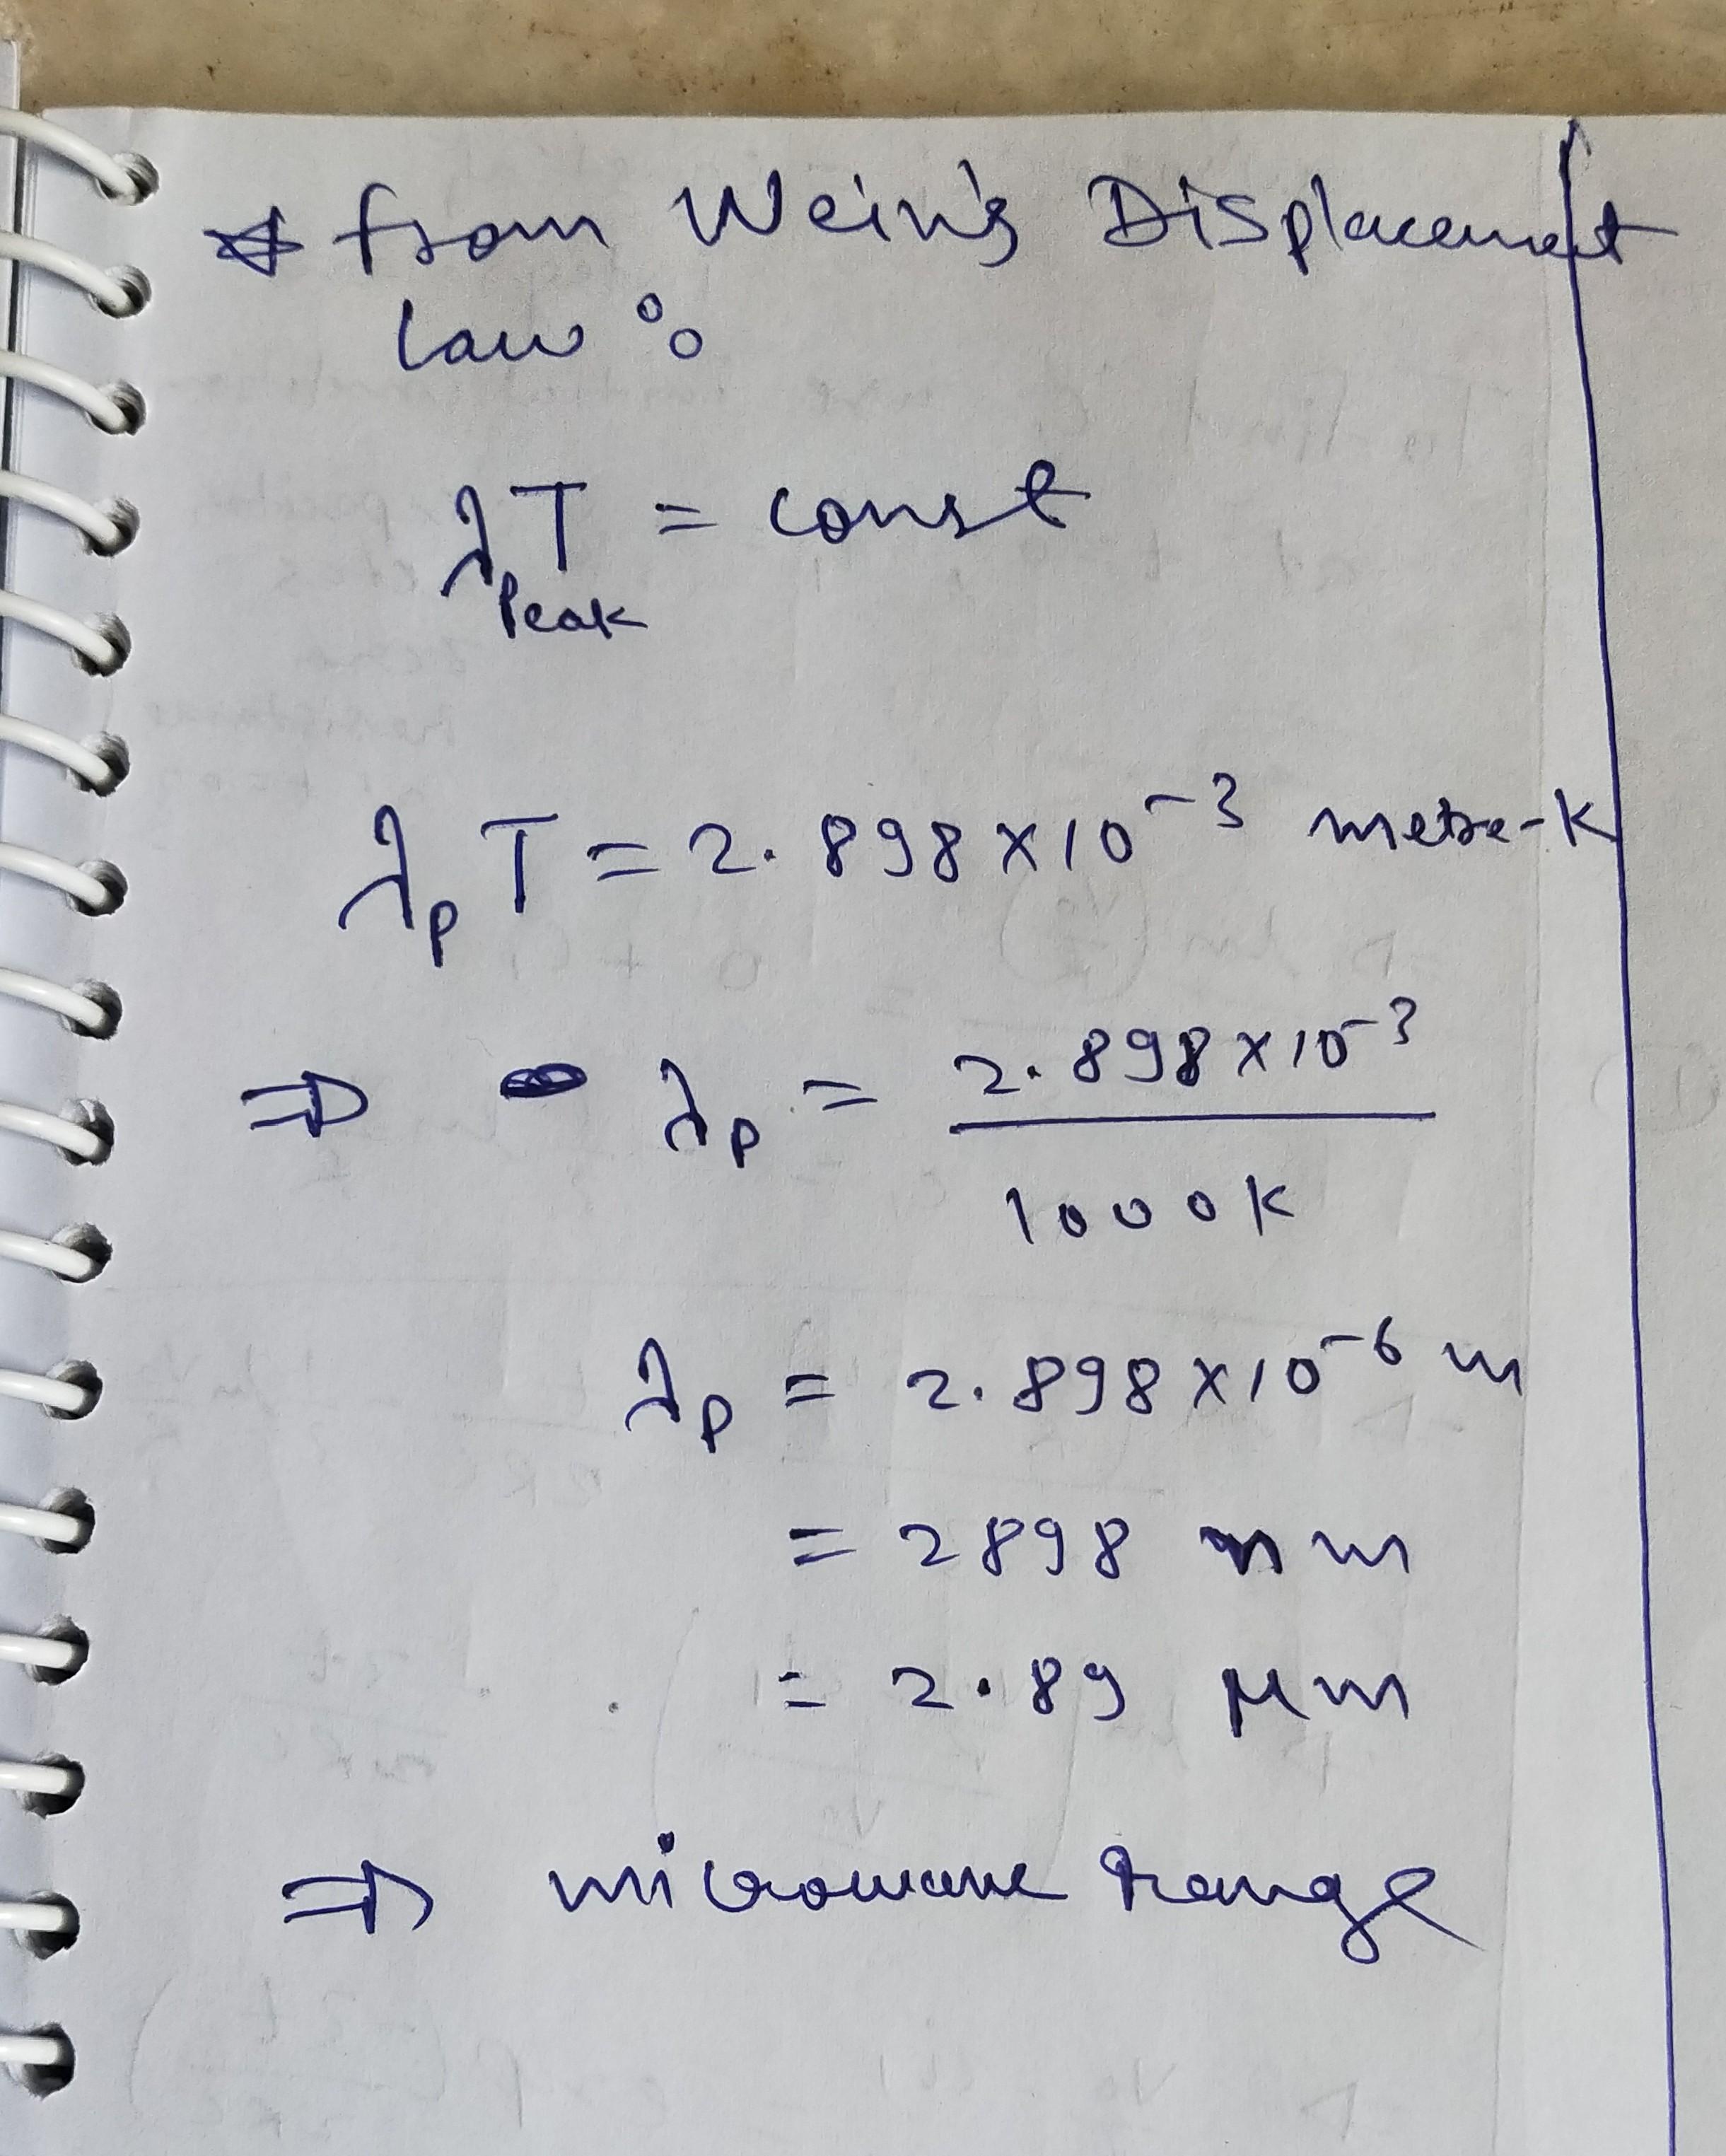 from Wein's Displacement
law :
λ_Peak T = const
λ_p T = 2.898 × 10^-3 metre-K
⇒ λ_p = 2.898 × 10^-3 / 1000 K
λ_p = 2.898 × 10^-6 m
= 2898 nm
= 2.89 μm
⇒ microwave range